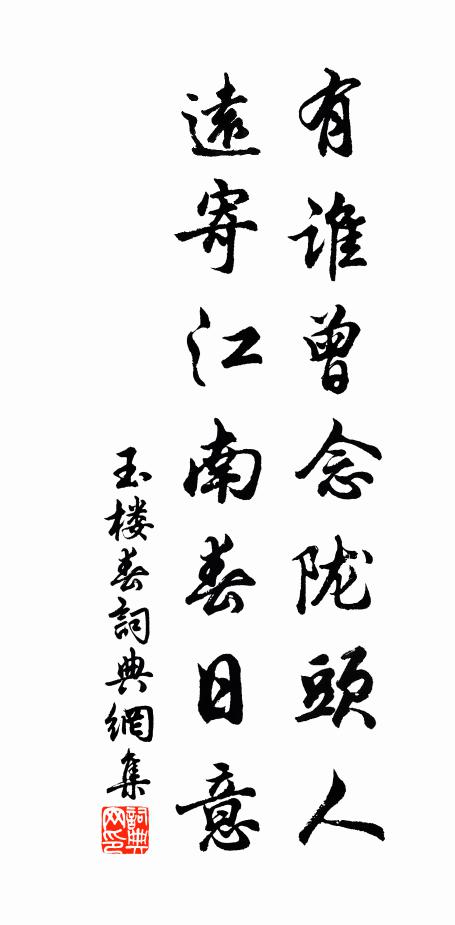 有誰曾念陇頭人
遠寄江南春日意
玉楼春詞典網集
詞典网印